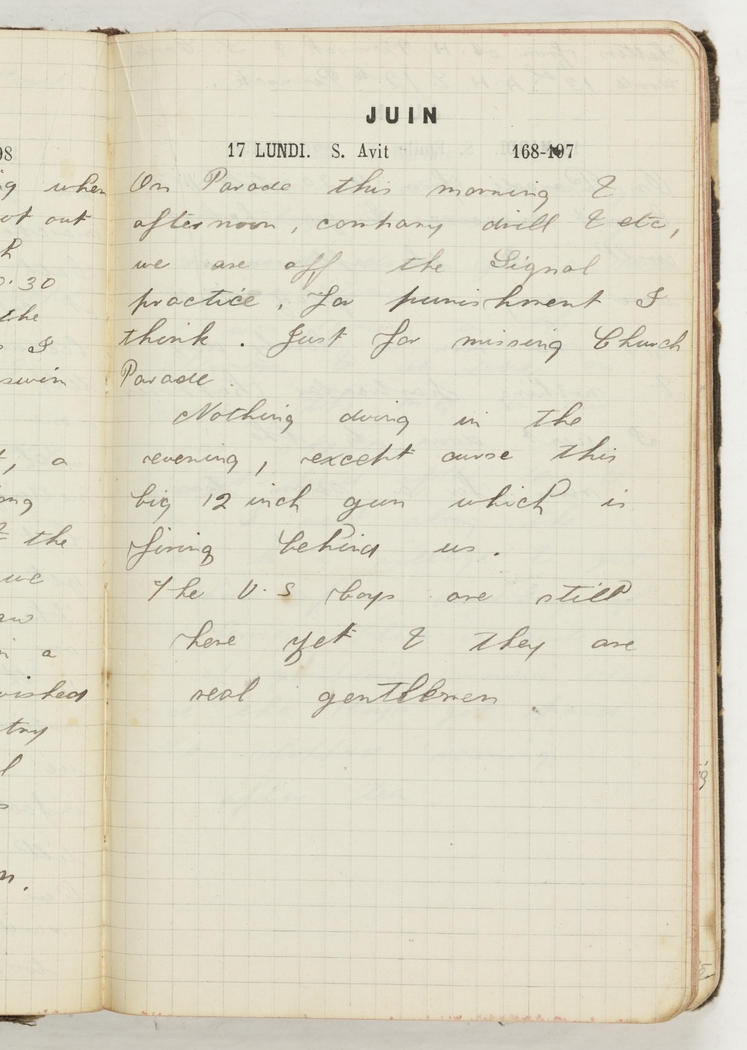 JUIN
17 LUNDI. S. Avit 168-197
On Parade this morning &
afternoon, company drill & etc,
we are off the Signal
practice, for punishment I
think. Just for missing Church
Parade.
Nothing doing in the
evening, except curse this
big 12 inch gun which is
firing behind us.
The U.S boys are still
here yet & they are
real gentlemen.
98
when
out
0.30
the
I
swim
, a
& the
we
in a